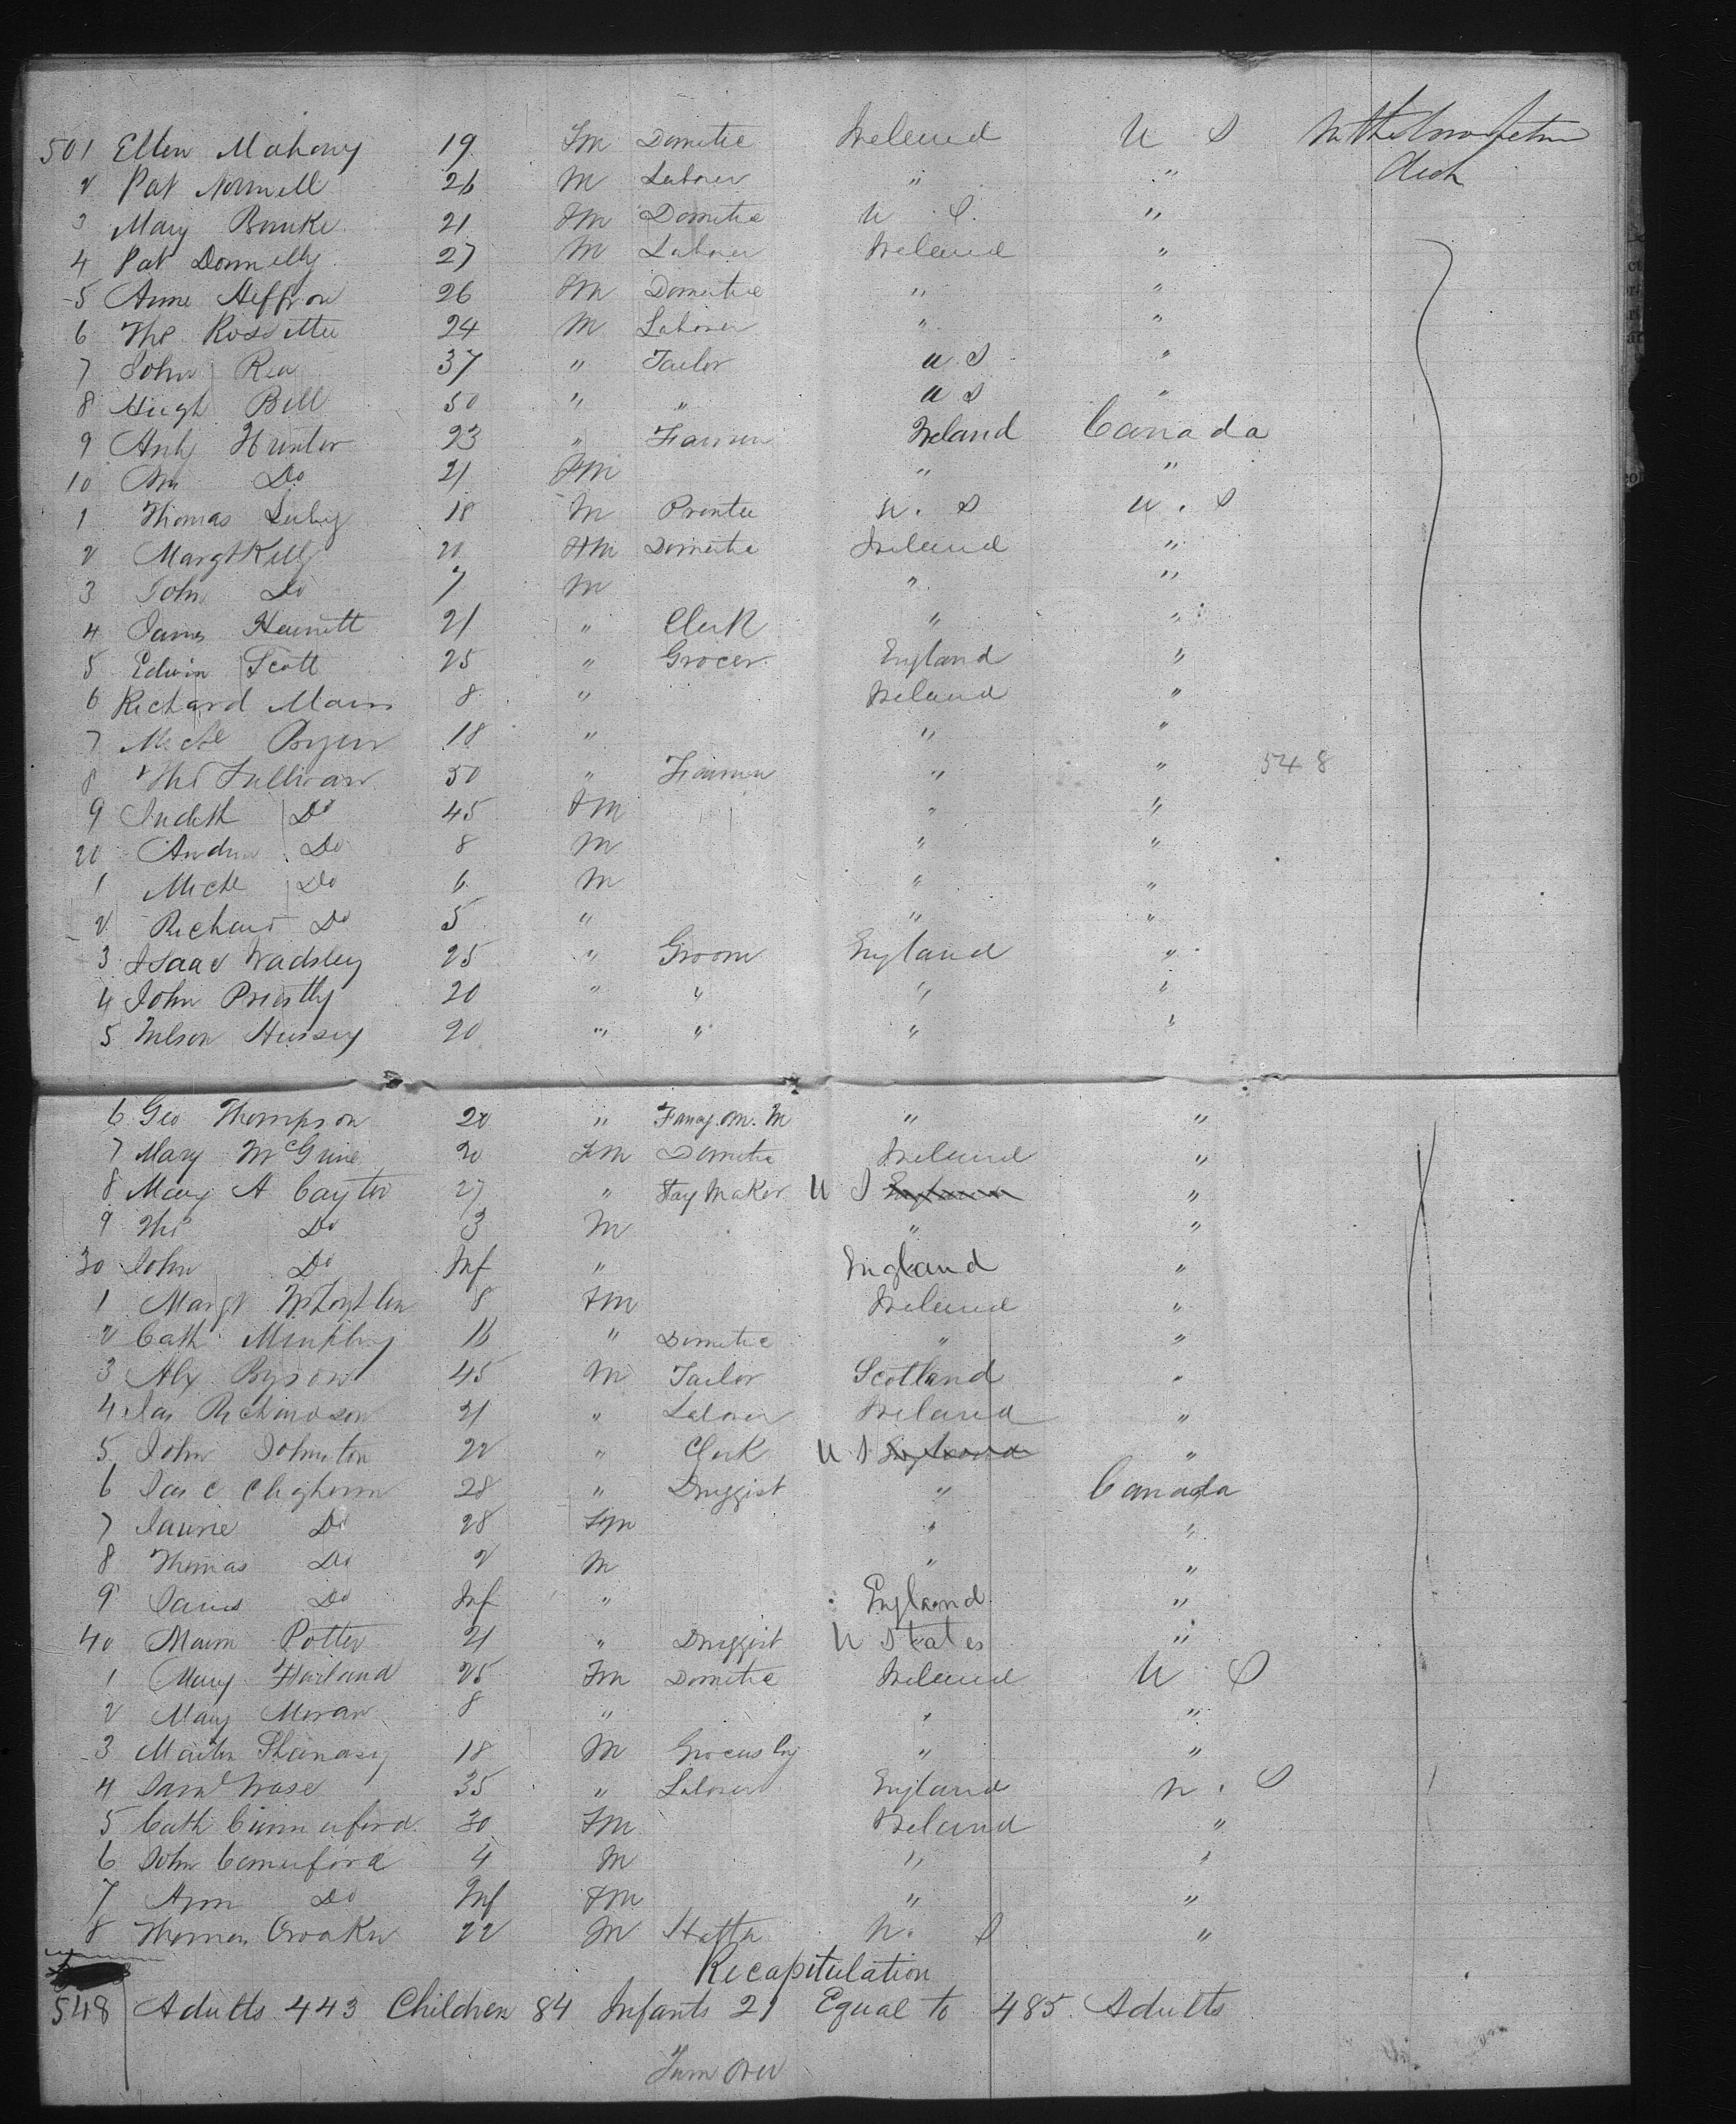 501 Ellen Mahony 19 Fm Dometic Ireland U S In the
2 Pat 26 M Laborer " " deck
3 Mary Bourke 21 Fm Dometic U S. "
4 Pat Donnelly 27 M Laborer Ireland "
5 Anne Heffron 26 Fm Domestic " "
6 Ths 24 M Laborer " "
7 John Rea 37 " Tailor U S "
8 Hugh Bell 50 " " U S "
9 Hunter 23 " Farmer Ireland Canada
10 Do 21 Fm " "
1 Thomas 18 M Printer U. S U. S
2 Margt Kelly 20 Fm Domestic Ireland "
3 John Do 7 M " "
4 James 21 " Clerk " "
5 Edwin Scott 25 " Grocer England "
6 Richard 8 " Ireland "
7 Michl 18 " " "
8 Ths Sullivan 50 " Farmer " " 548
9 Judith Do 45 Fm " "
20 Andrew Do 8 M " "
1 Michl Do 6 M " "
2 Richard Do 5 " " "
3 Isaac Wadsley 25 " Groom England "
4 John Priestly 20 " " " "
5 Nelson Hussey 20 " " " "
6 Geo Thompson 20 " " "
7 Mary McGuire 20 Fm Dometic Ireland "
8 Mary A Cayter 27 " Stay Maker U S England "
9 Ths Do 3 M " "
30 John Do Inf " England "
1 Margt 8 Fm Ireland "
2 Cath Murphy 16 " Dometic " "
3 Alx Byson 45 M Tailor Scotland "
4 Jas Richardson 21 " Laborer Ireland "
5 John Johnston 22 " Clerk U S England "
6 Jas C Cleghorn 28 " Druggist " Canada
7 Do 28 Fm " "
8 Thomas Do 2 M " "
9 James Do Inf " England "
40 Potter 21 " Druggist U States "
1 Mary Harland 25 Fm Dometic Ireland U S
2 Mary Moran 8 " " "
3 Martin 18 M " "
4 Saml Wase 35 " Laborer England U. S
5 Cath 30 Fm Ireland "
6 John Comerford 4 M " "
7 Ann Do Inf Fm " "
8 Thomas Croaker 22 M Hatter U. S "
Recapitulation
548 Adults 443 Children 84 Infants 21 Equal to 485 Adults
Turn Over